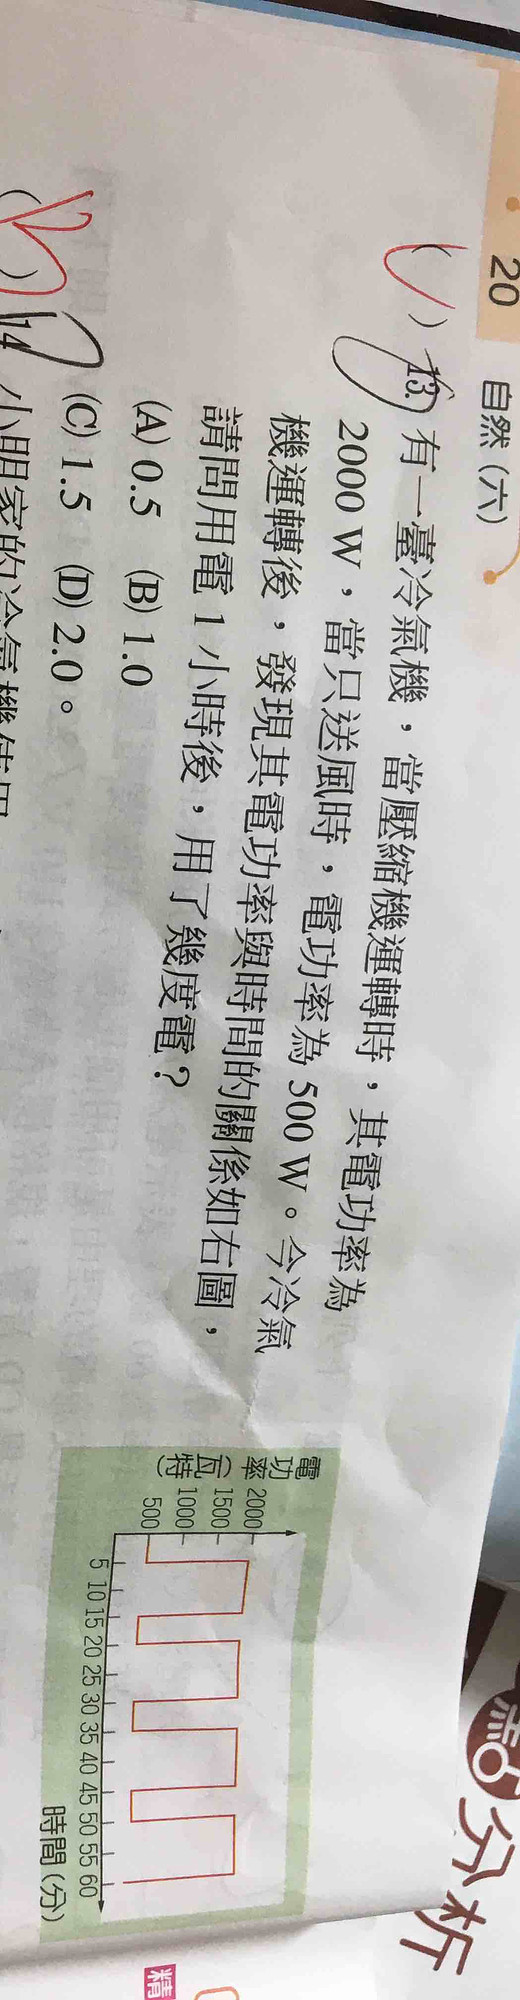 20 自然(六)
( ) 13. 有一臺冷氣機，當壓縮機運轉時，其電功率為
2000 W，當只送風時，電功率為 500 W。今冷氣
機運轉後，發現其電功率與時間的關係如右圖，
請問用電 1 小時後，用了幾度電？
(A) 0.5 (B) 1.0
(C) 1.5 (D) 2.0。
( ) 14 小明家的冷氣機使用
電功率(瓦特)
2000
1500
1000
500
5 10 15 20 25 30 35 40 45 50 55 60
時間(分)
分析
精